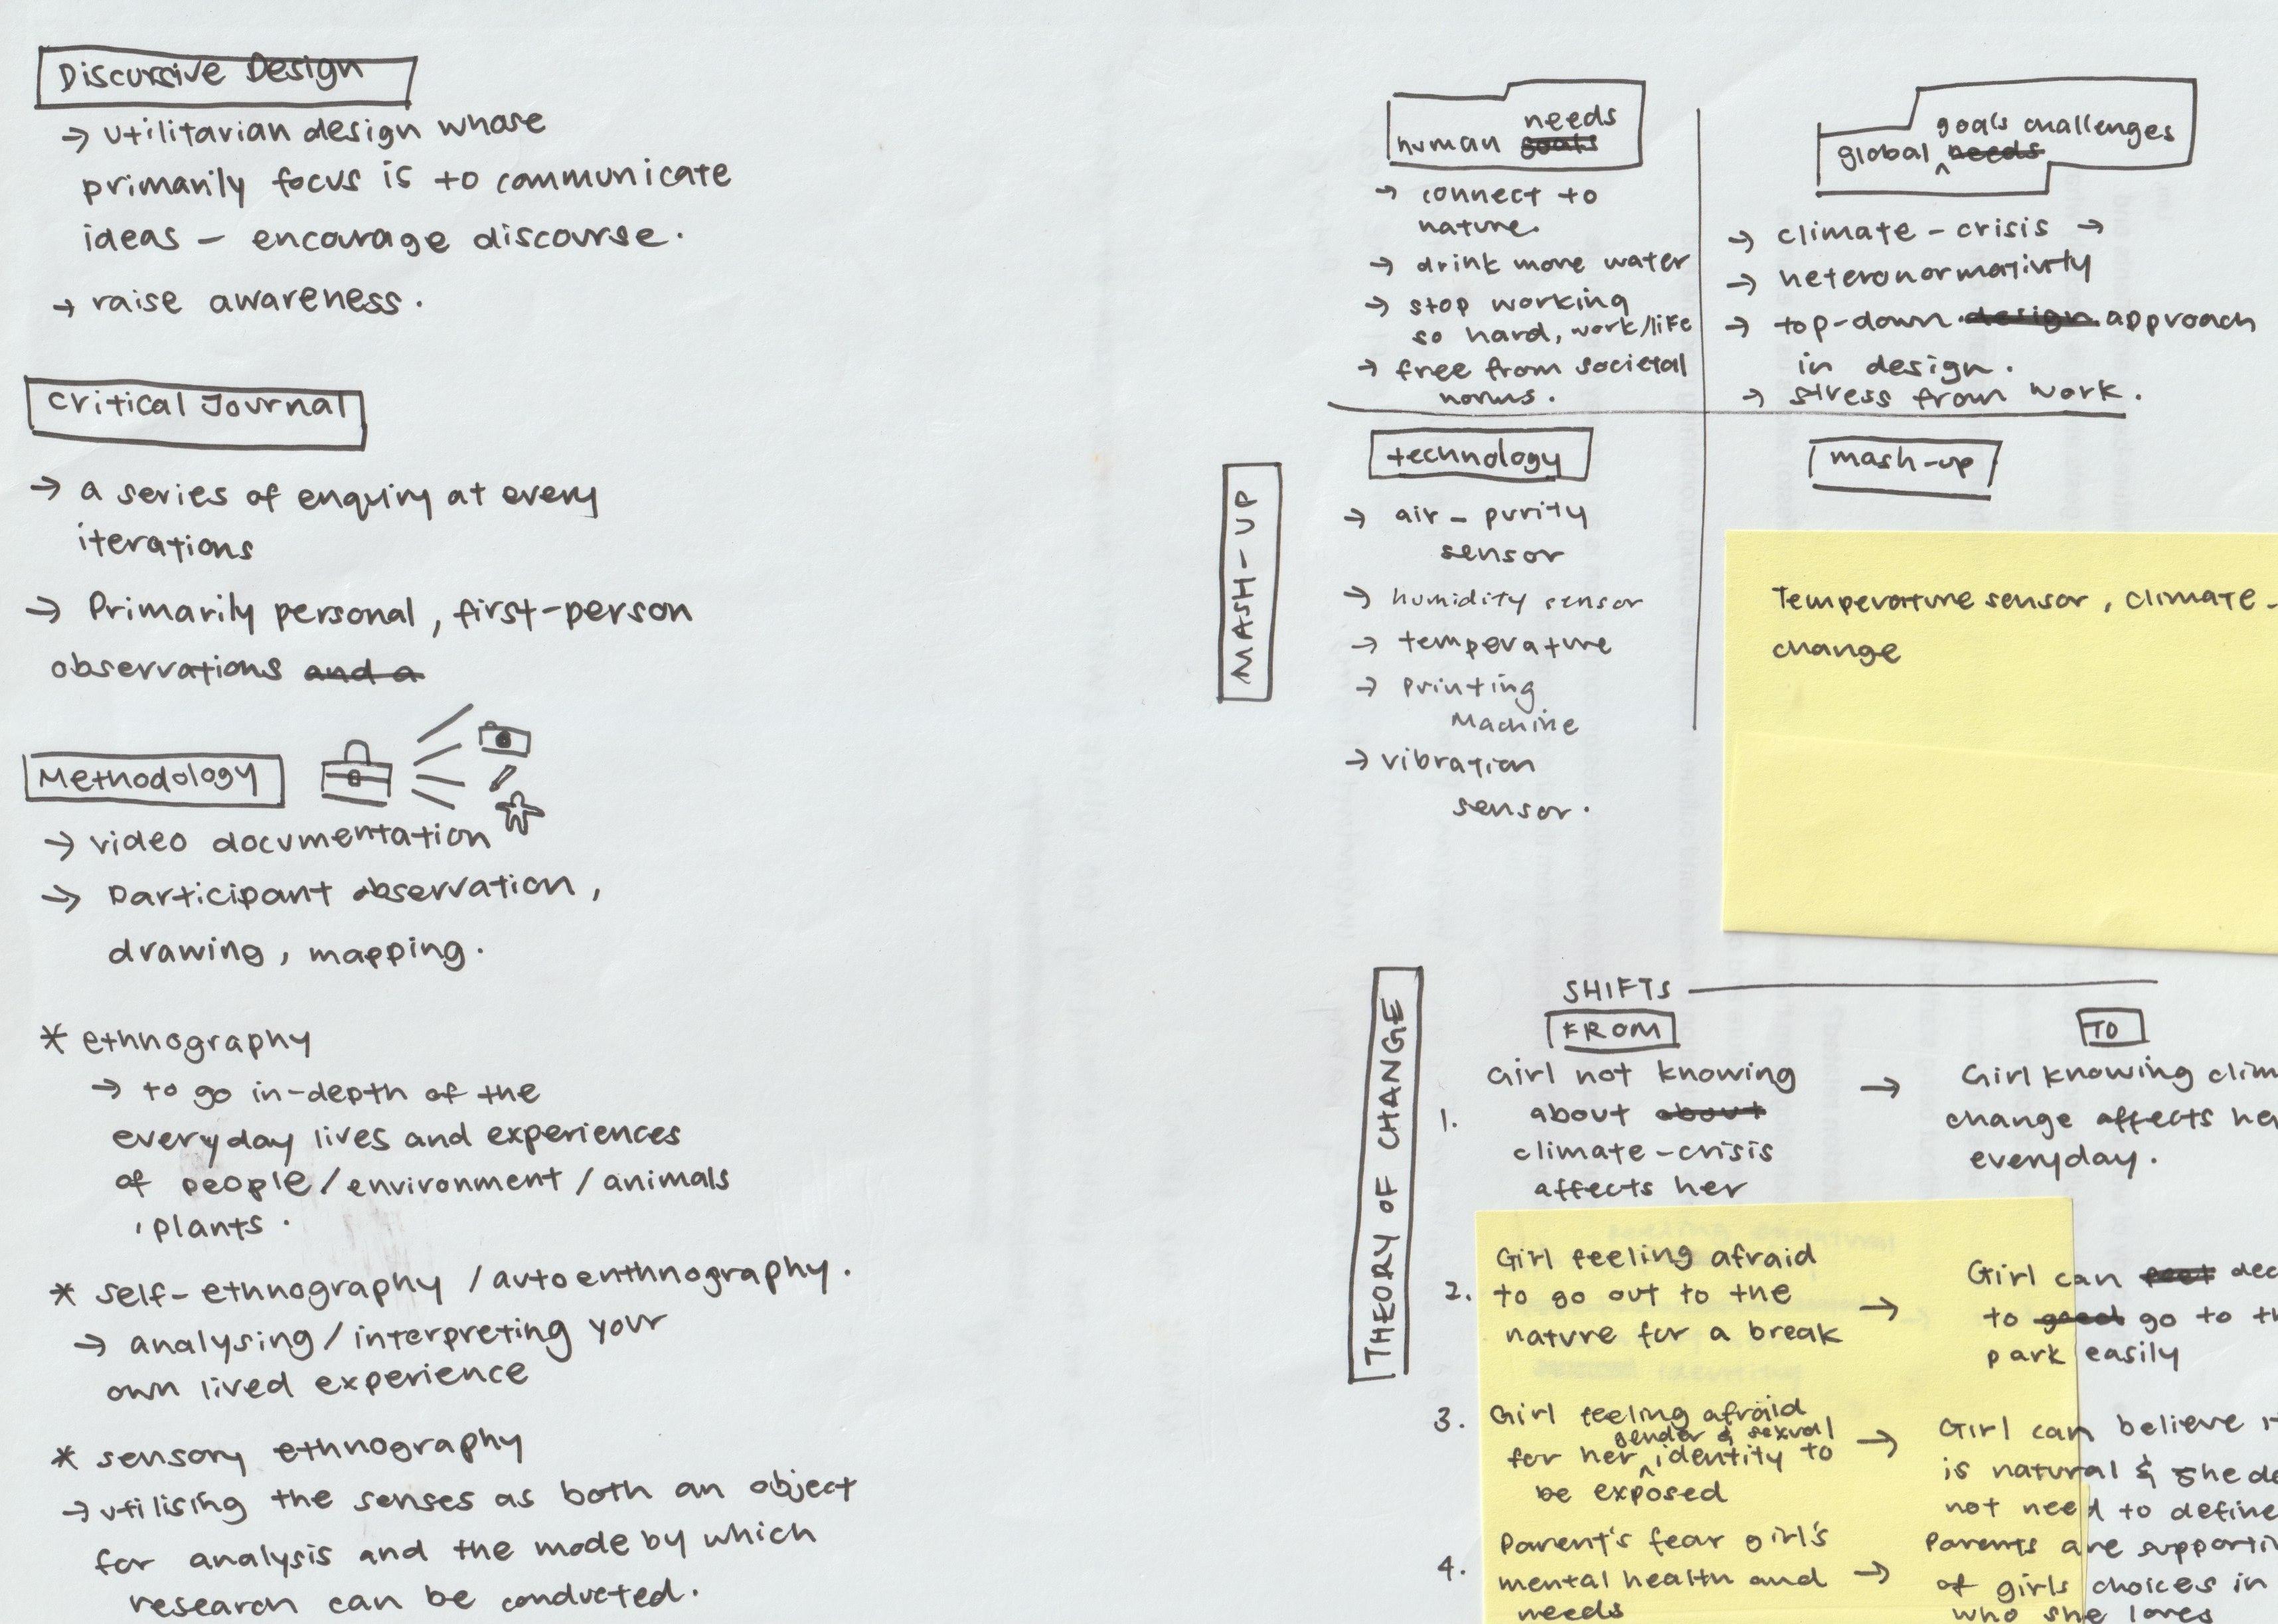 Discursive Design
→ utilitarian design whose
primarily focus is to communicate
ideas – encourage discourse.
→ raise awareness.
Critical Journal
→ a series of enquiry at every
iterations
→ Primarily personal, first-person
observations and a
Methodology
→ video documentation
→ Participant observation,
drawing, mapping.
* ethnography
→ to go in-depth of the
everyday lives and experiences
of people / environment / animals
, plants.
* self-ethnography / autoenthnography.
→ analysing / interpreting your
own lived experience
* sensory ethnography
→ utilising the senses as both an object
for analysis and the mode by which
research can be conducted.
MASH-UP
needs
human goals
→ connect to
nature.
→ drink more water
→ stop working
so hard, work/life
→ free from societal
norms.
goals challenges
global ^ needs
→ climate-crisis →
→ heteronormativity
→ top-down design approach
in design.
→ stress from work.
technology
→ air-purity
sensor
→ humidity sensor
→ temperature
→ Printing
Machine
→ vibration
sensor.
mash-up
Temperature sensor, climate-
change
THEORY OF CHANGE
SHIFTS
FROM
TO
1. Girl not knowing
about about
climate-crisis
affects her
→ Girl knowing clim
change affects he
everyday.
2. Girl feeling afraid
to go out to the
nature for a break
→ Girl can feel dec
to good go to th
park easily
3. Girl feeling afraid
gender & sexual
for her ^ identity to
be exposed
→ Girl can believe it
is natural & she do
not need to define
4. Parent's fear girl's
mental health and
needs
→ Parents are supporti
of girls choices in
who she loves